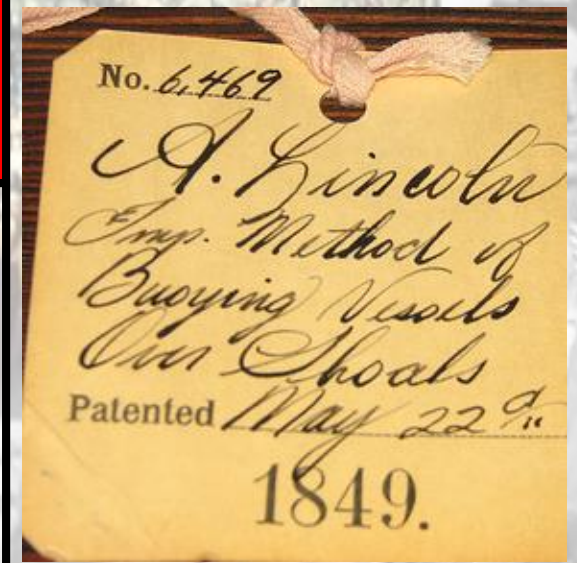 No. 6,469
A. Lincoln
Imp. Method of
Buoying Vessels
Over Shoals
Patented May 22d
1849.